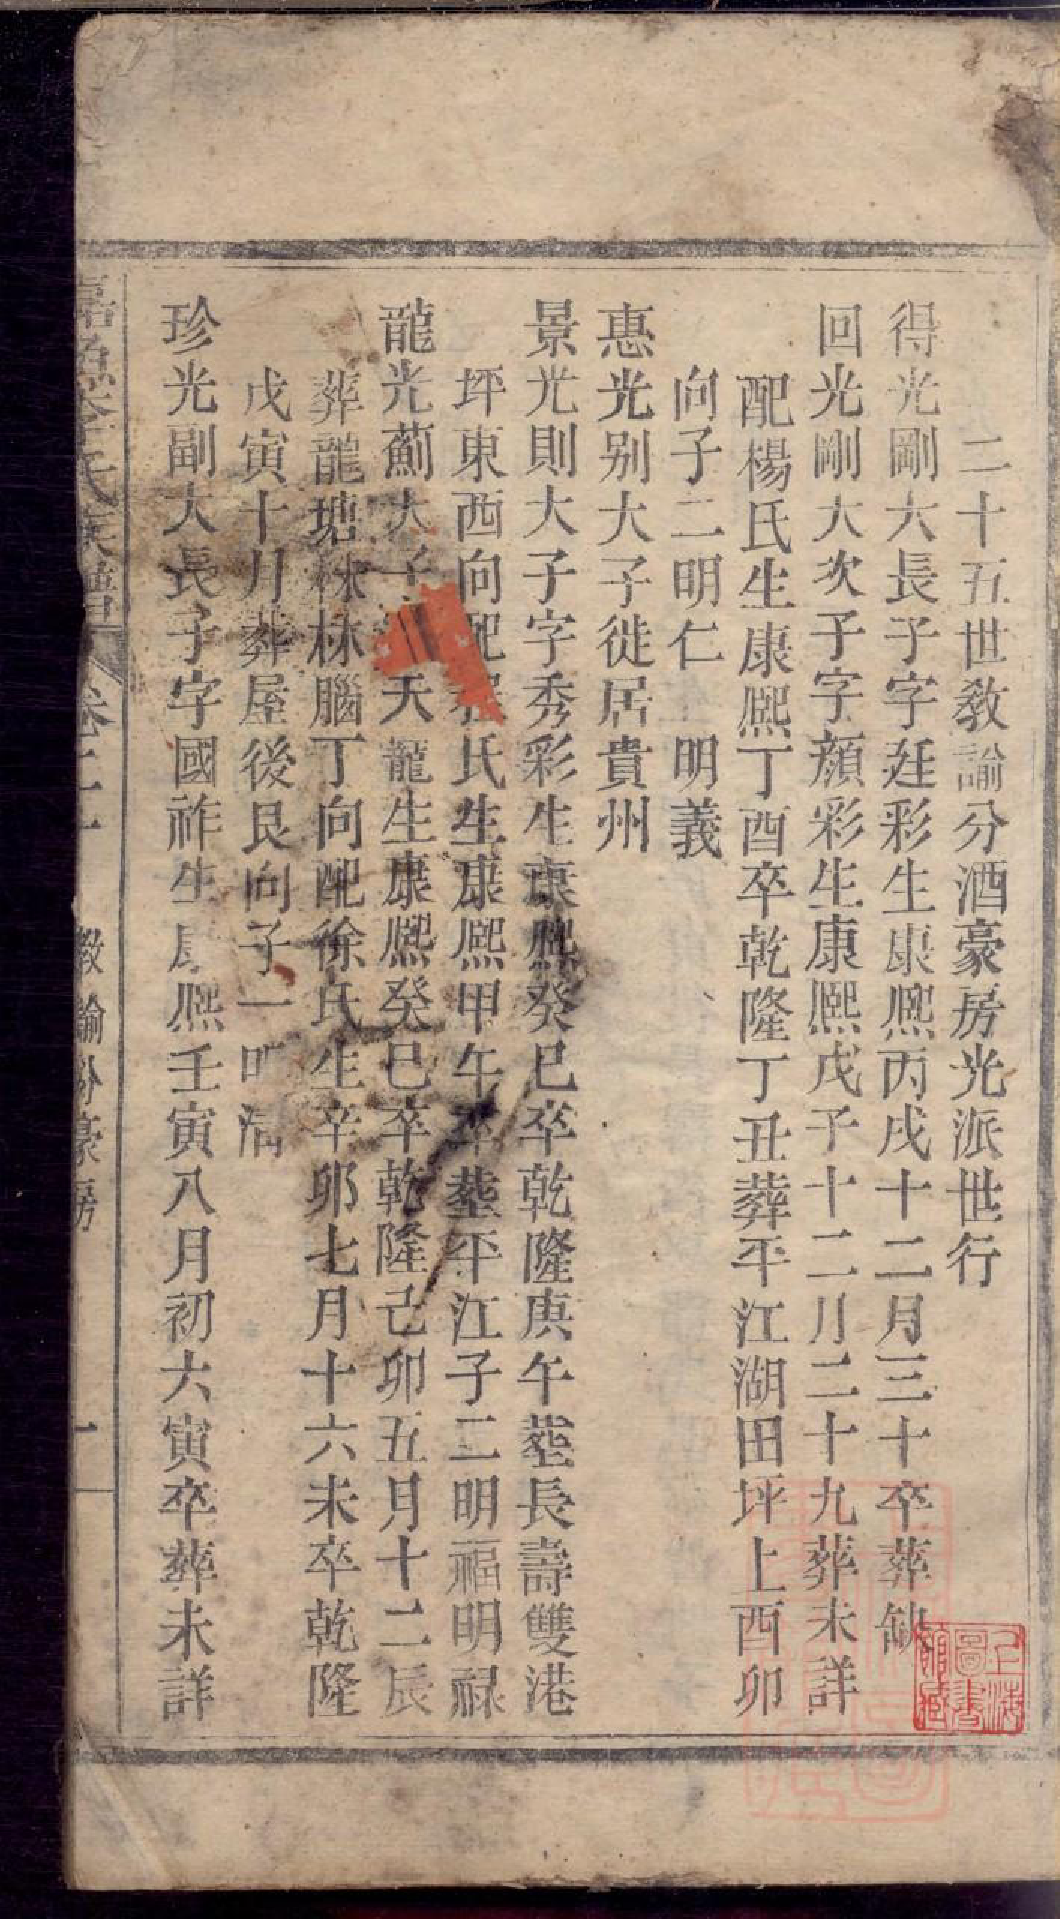 二十五世敎諭分酒豪房光派世行
得光剛大長子字廷彩生康熙丙戌十二月三十卒葬缺
回光剛大次子字顏彩生康熙戊子十二月二十九葬未詳
配楊氏生康熙丁酉卒乾隆丁丑葬平江湖田坪上酉卯
向子二明仁 明義
惠光别大子徙居貴州
景光則大子字秀彩生康熙癸巳卒乾隆庚午塟長壽雙港
坪東西向配 氏生康熙甲午卒塟平江子二明福明禄
龍光薊大子 天龍生康熙癸巳卒乾隆己卯五月十二辰
葬龍塘 腦丁向配徐氏生辛卯七月十六未卒乾隆
戊寅十月葬屋後艮向子一明
珍光副大長子字國祚生康熙壬寅八月初六寅卒葬未詳
李氏族譜
卷二十
敎諭分豪房
一
上海圖書館藏